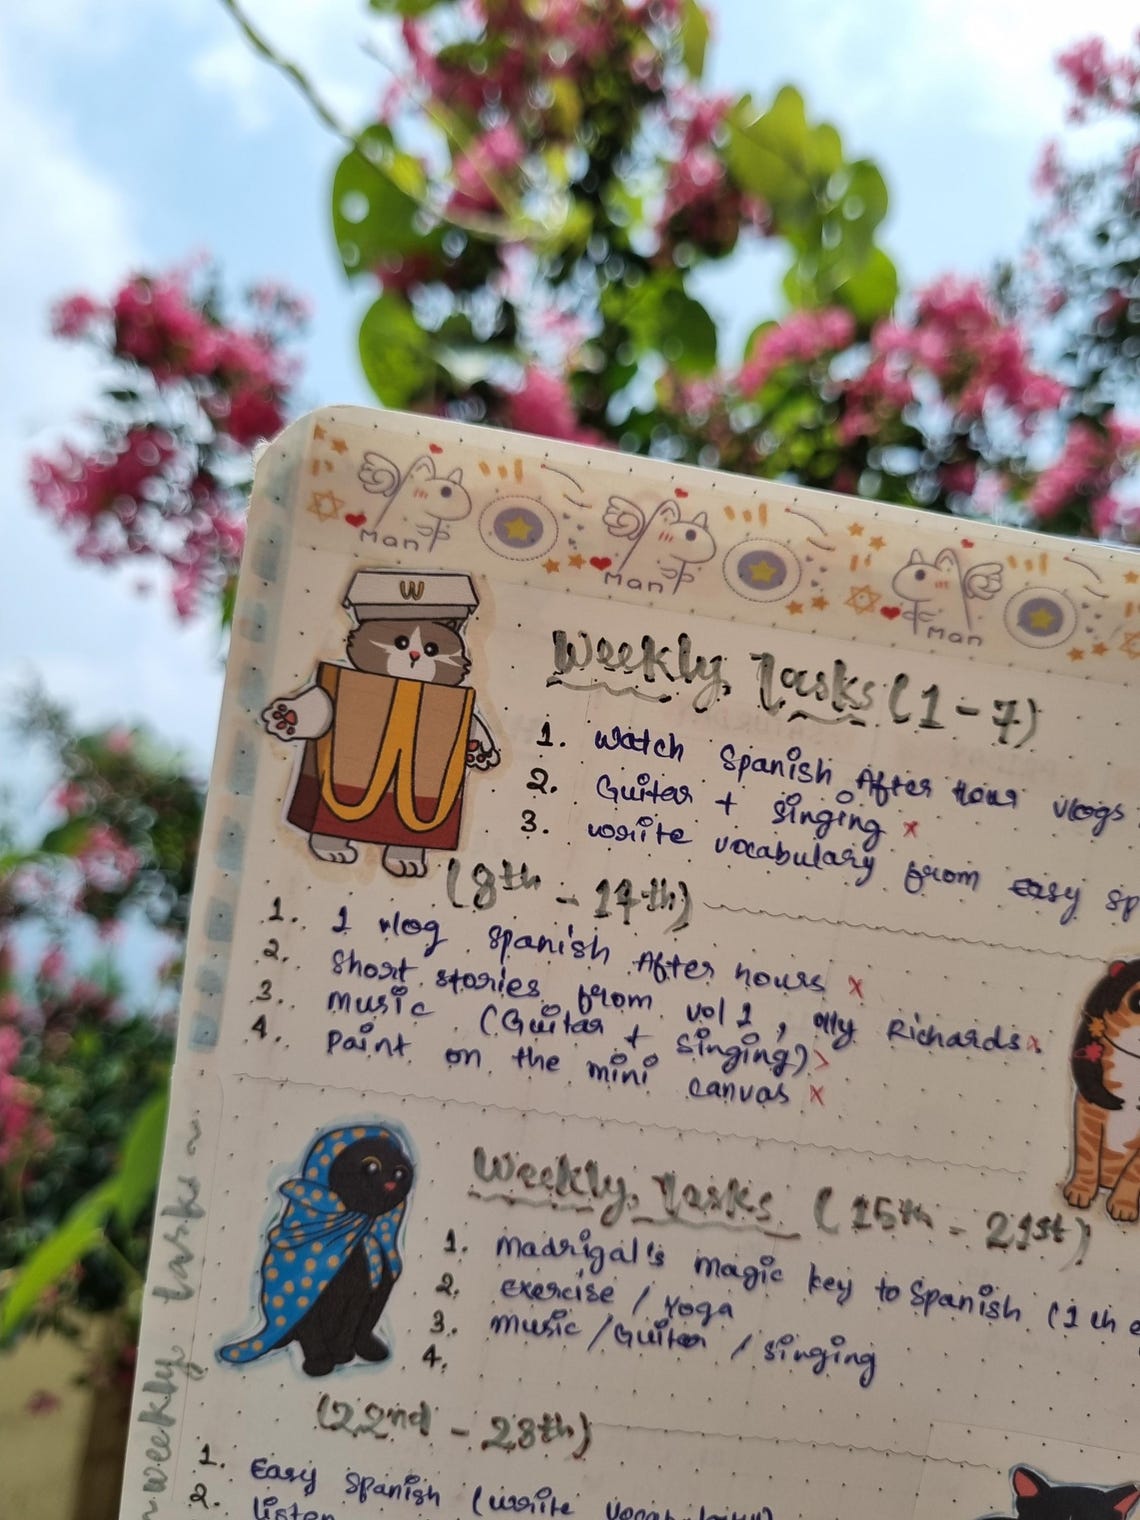 Man
Man
Man
W
Weekly Tasks (1-7)
1. Watch Spanish After hour vlogs
2. Guitar + Singing x
3. write vocabulary from easy Sp
(8th - 14th)
1. 1 vlog Spanish After hours x
2. Short stories from vol 1, olly Richards x
3. Music (Guitar + Singing) x
4. Paint on the mini canvas x
Weekly Tasks (15th - 21st)
1. Madrigal's magic key to Spanish (1 ch
2. exercise / Yoga
3. Music / Guitar / Singing
4.
(22nd - 28th)
1. Easy Spanish (write vocabulary)
2. listen
~ weekly tasks ~